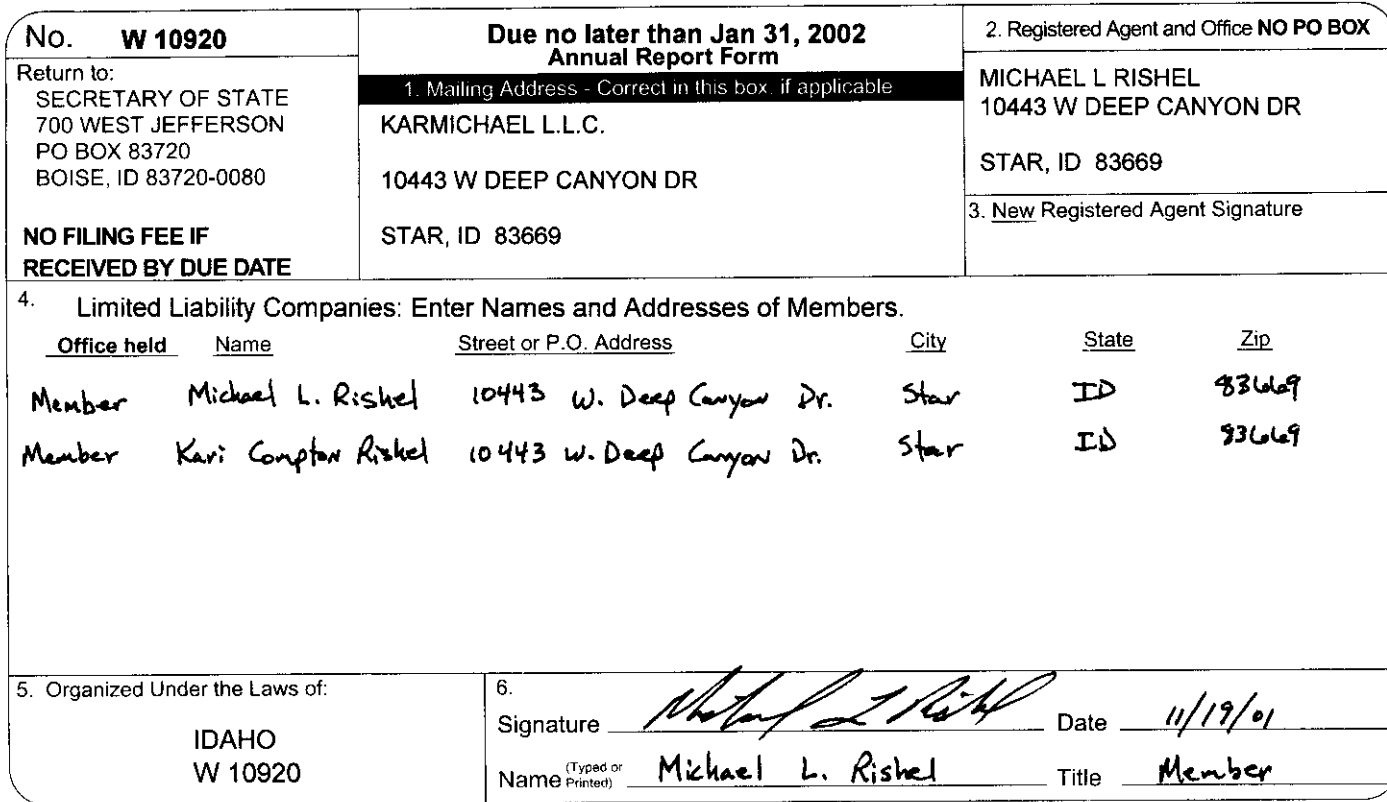 No. W 10920
Return to:
SECRETARY OF STATE
700 WEST JEFFERSON
PO BOX 83720
BOISE, ID 83720-0080
NO FILING FEE IF
RECEIVED BY DUE DATE
Due no later than Jan 31, 2002
Annual Report Form
1. Mailing Address - Correct in this box, if applicable
KARMICHAEL L.L.C.
10443 W DEEP CANYON DR
STAR, ID 83669
2. Registered Agent and Office NO PO BOX
MICHAEL L RISHEL
10443 W DEEP CANYON DR
STAR, ID 83669
3. New Registered Agent Signature
4. Limited Liability Companies: Enter Names and Addresses of Members.
Office held Name Street or P.O. Address City State Zip
Member Michael L. Rishel 10443 W. Deep Canyon Dr. Star ID 83669
Member Kari Compton Rishel 10443 W. Deep Canyon Dr. Star ID 83669
5. Organized Under the Laws of:
IDAHO
W 10920
6.
Signature Michael L Rishel Date 11/19/01
Name (Typed or Printed) Michael L. Rishel Title Member